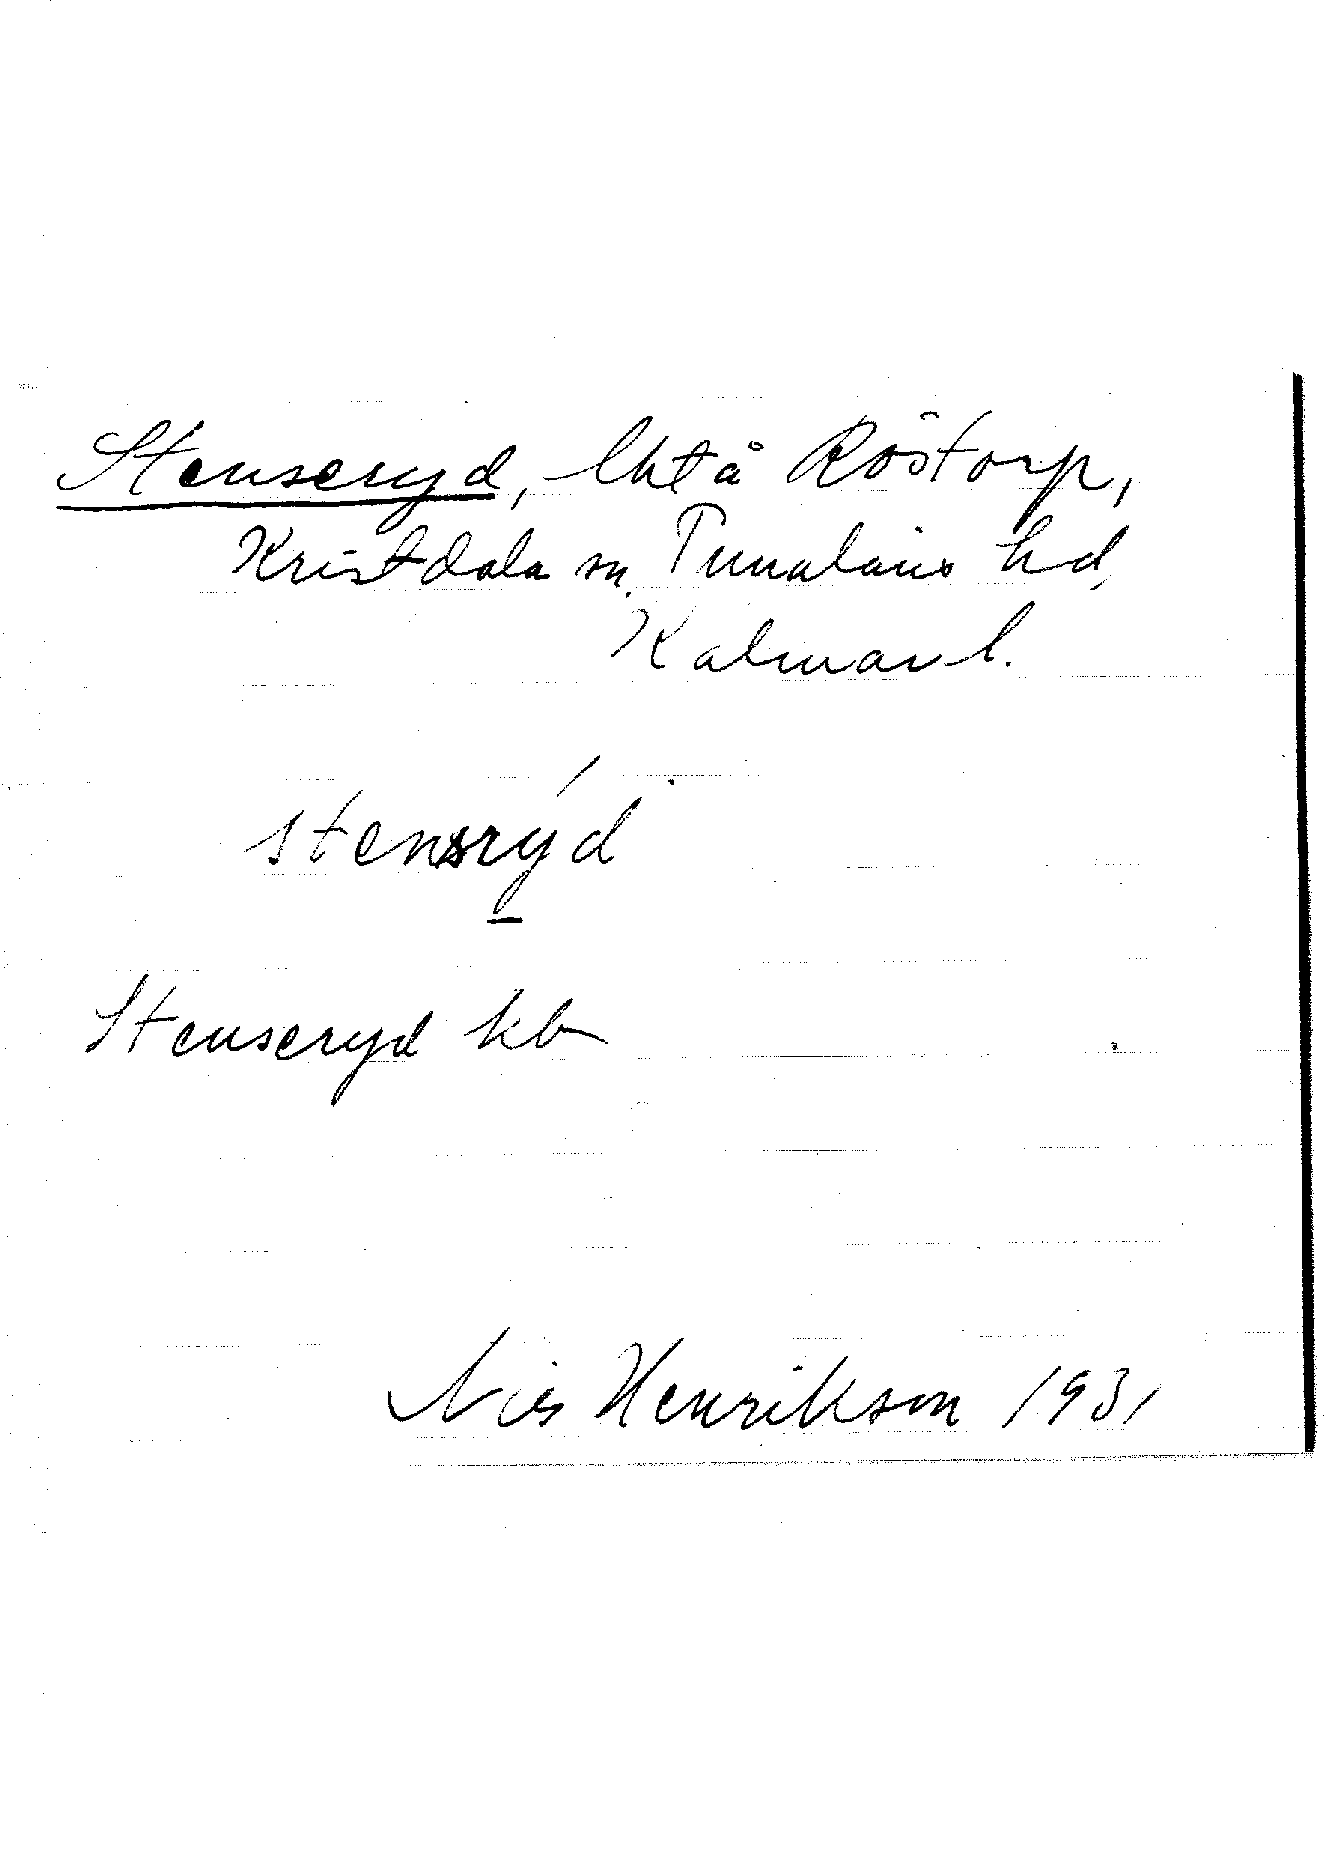 Stenseryd, lht å Röstorp,
Kristdala sn. Tunaläns hd,
Kalmar l.
stensrýd
Stenseryd kb
Nils Henrikson 1931